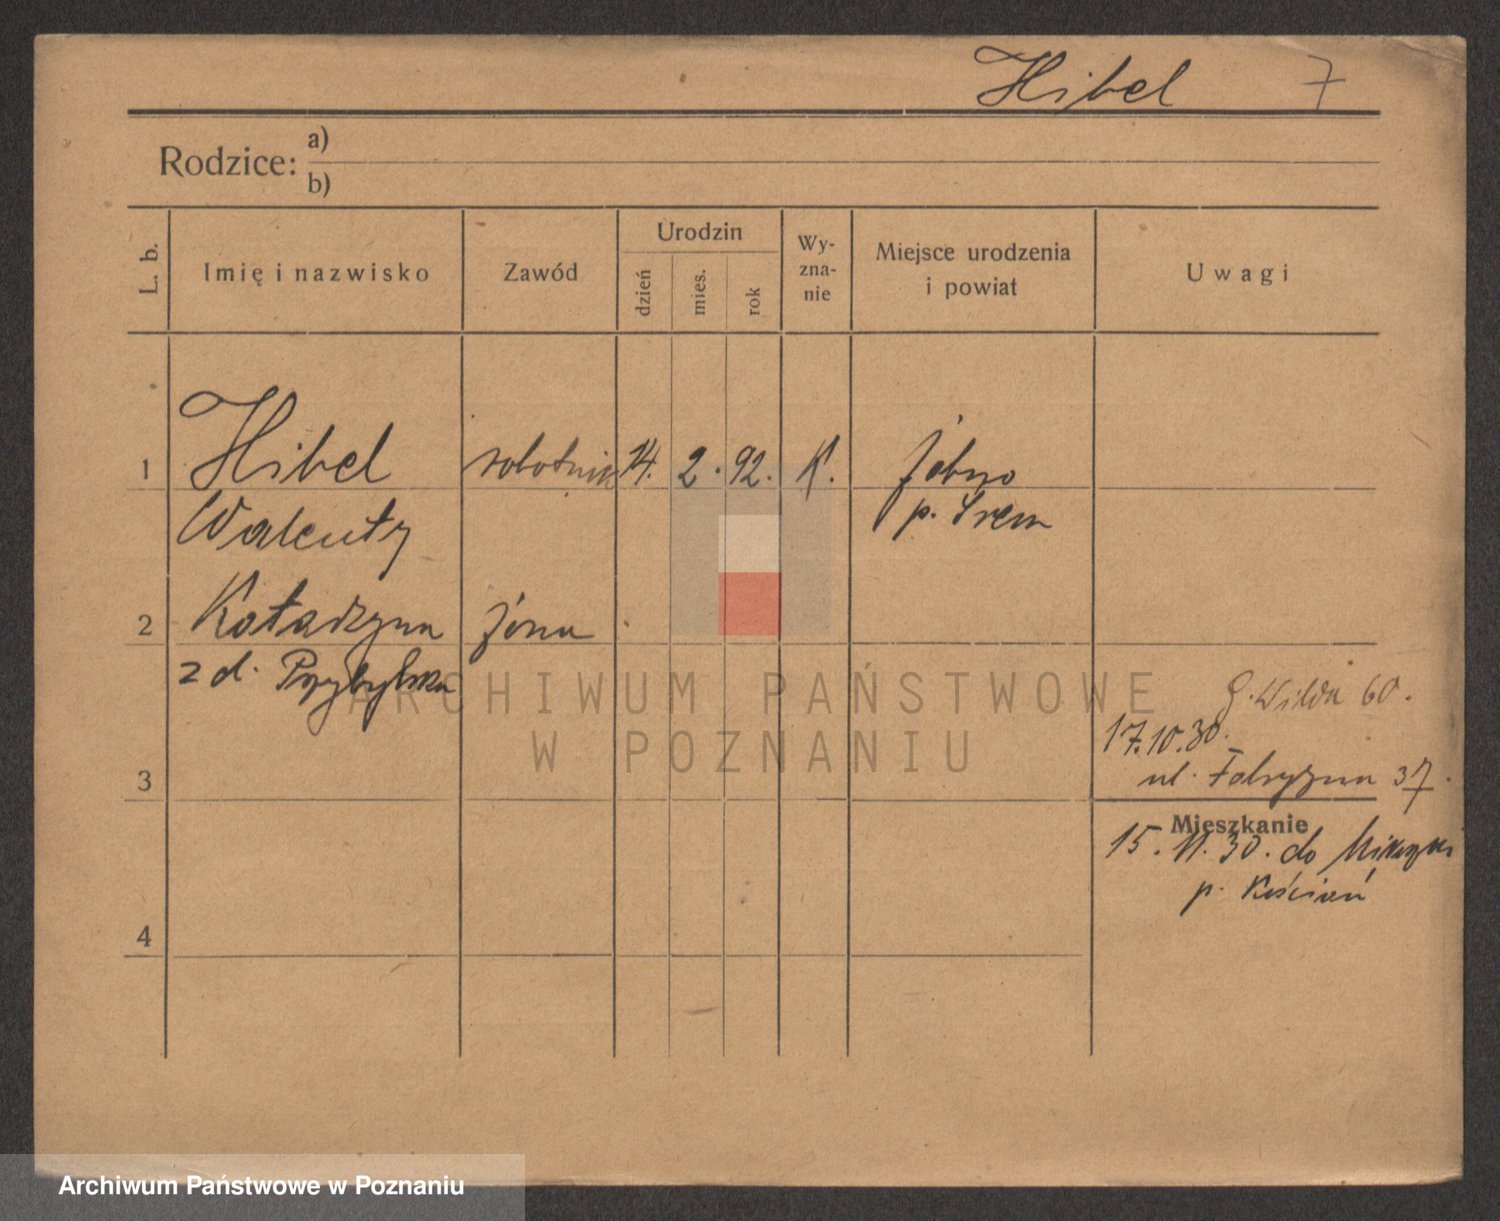 Hibel 7
Rodzice: a)
b)
L. b. Imię i nazwisko Zawód Urodzin dzień mies. rok Wy-zna-nie Miejsce urodzenia i powiat Uwagi
1 Hibel robotnik 14. 2. 92. K.
Walenty p. Śrem
2 Katarzyna żona
z d. Przybylska
G. Wilda 60.
17.10.30.
3 ul. Fabryczna 37.
Mieszkanie
15. 11. 30. do
p. Kościan
4
ARCHIWUM PAŃSTWOWE
W POZNANIU
Archiwum Państwowe w Poznaniu